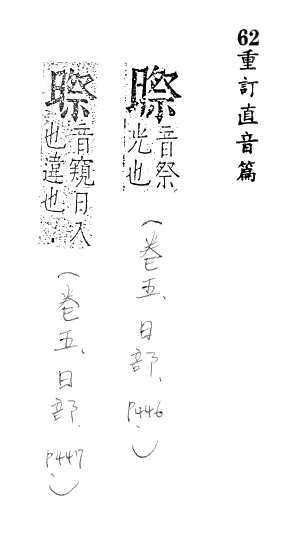 62重訂直音篇
暩
音祭
光也
(卷五、日部、P446、)
音窺日入
也違也
(卷五、日部、P447、)